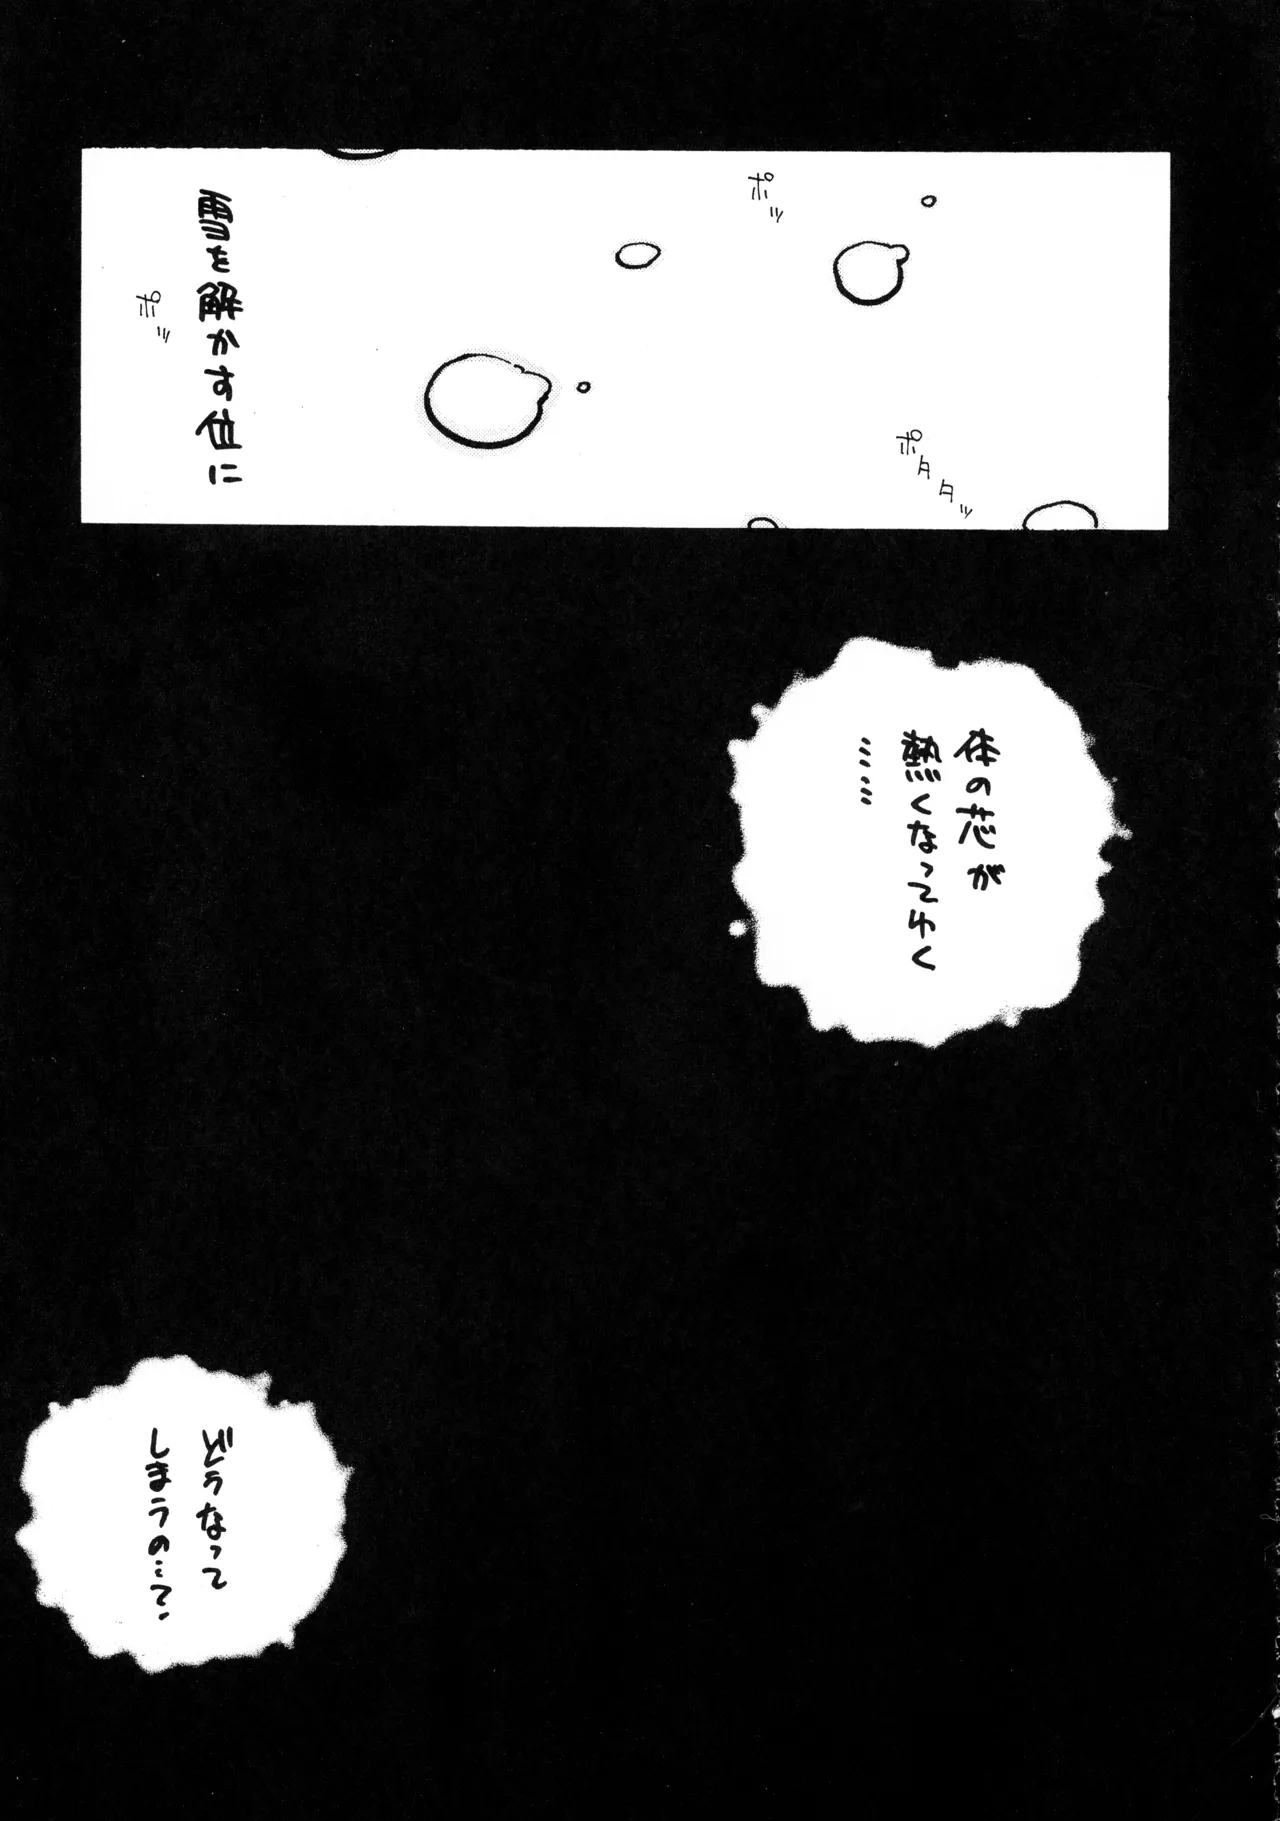 ポッ
ポタタッ
雪を解かす位に
ポッ
体の芯が
熱くなってゆく
……
どうなって
しまうの…?